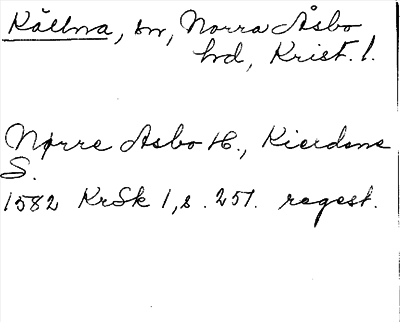 Källna, sn, Norra Åsbo
hd, Krist. l.
Nørre Asbo H., Kierdsne
S.
1582 KrSk 1, s. 251. regest.